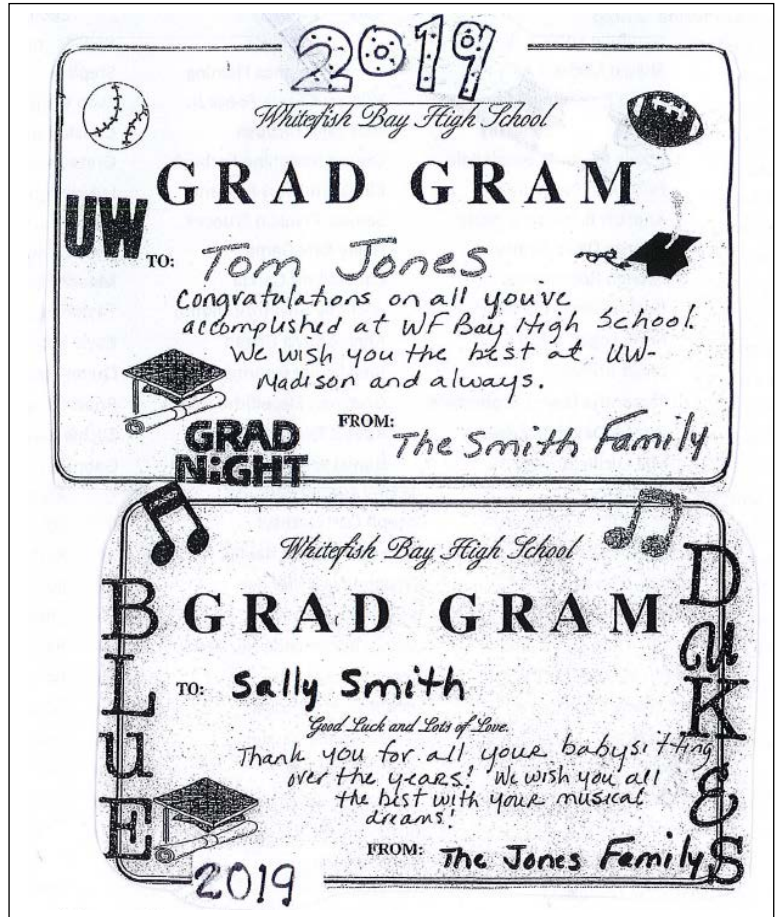 2019
Whitefish Bay High School
GRAD GRAM
UW
TO: Tom Jones
Congratulations on all you've
accomplished at WF Bay High School.
We wish you the best at UW-
Madison and always.
FROM: The Smith Family
GRAD
NiGHT
Whitefish Bay High School
GRAD GRAM
BLuE
DuKES
TO: Sally Smith
Good Luck and Lots of Love.
Thank you for all your babysitting
over the years! We wish you all
the best with your musical
dreams!
FROM: The Jones Family
2019